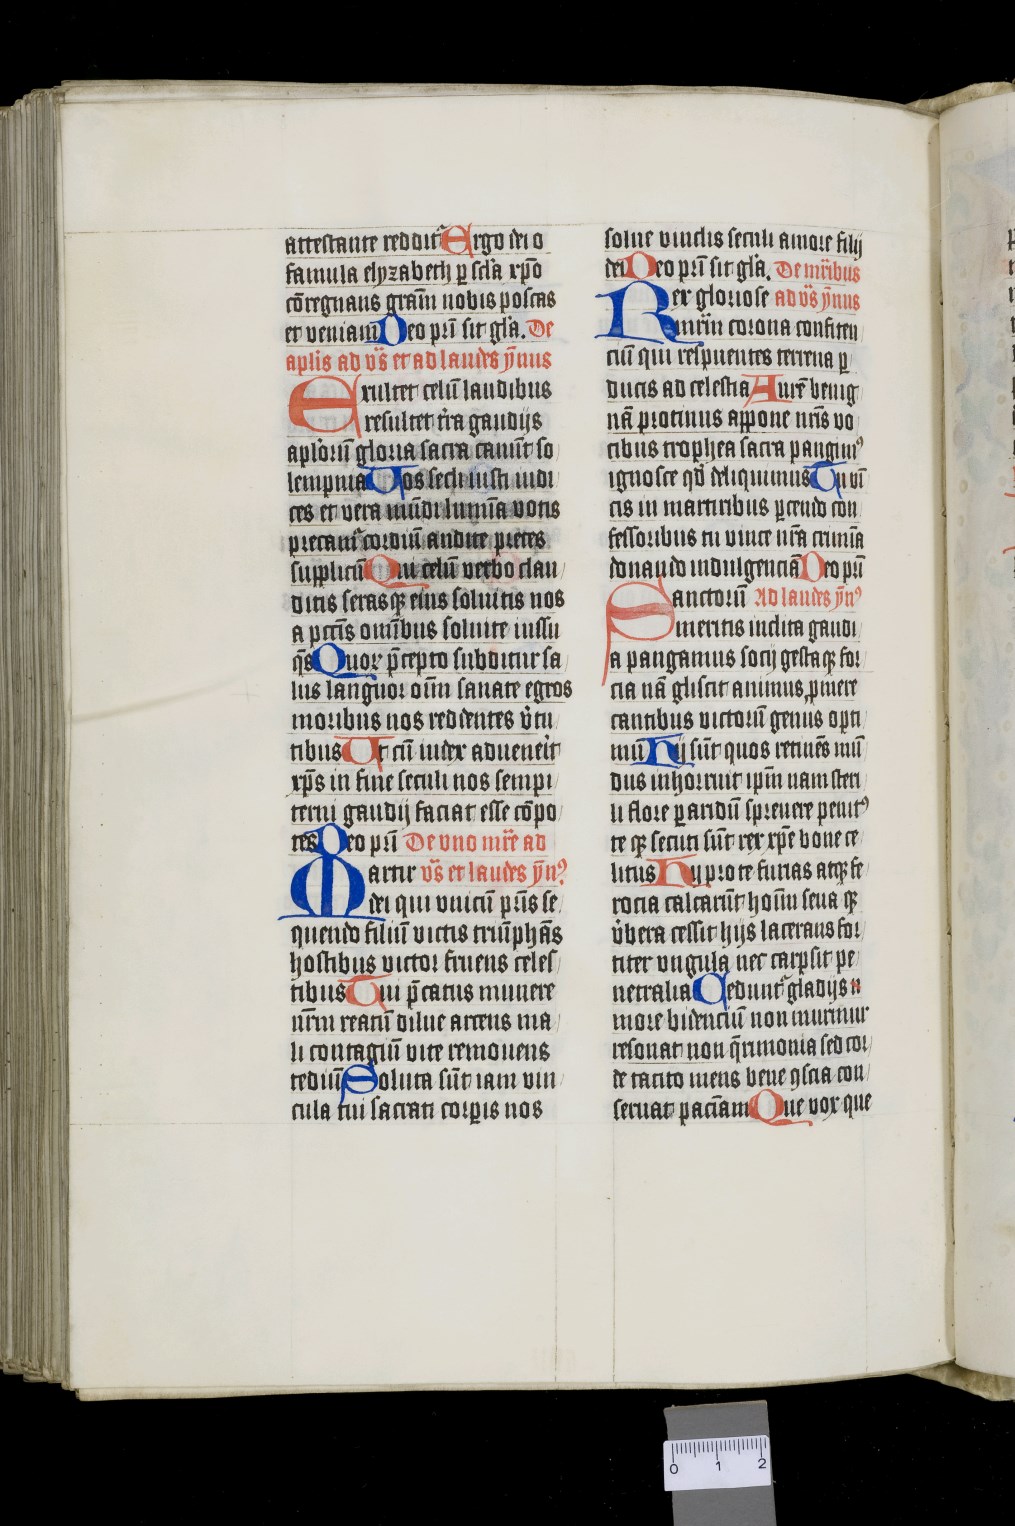 attestante reddit᷑ Ergo dei o
famula elyzabeth ꝑ sc̄la xp̄o
cōregnans grām nobis poscas
et veniam Deo pr̄i sit gl̄a. De
apl̄is ad vs̄ et ad laudes ȳnus
Exultet celū laudibus
resultet t̄ra gaudijs
apl̄oꝝ gloria sacra canūt so
lempnia Uos secli iusti iudi
ces et vera mūdi lumīa votis
precam᷑ cordiū audite p̄ces
supplicū Qui celū verbo clau
ditis serasqꝫ eius soluitis nos
a pctīs omībus soluite iussu
qs̄ Quoꝝ p̄cepto subditur sa
lus languor oīm sanate egros
moribus nos reddentes v̄tu
tibus Ut cū iudex aduenerit
xp̄s in fine seculi nos sempi
terni gaudij faciat esse cōpo
tes Deo pr̄i De vno mr̄e ad
Martir vs̄ et laudes ȳnꝰ
dei qui vnicū pr̄is se
quendo filiū victis triūphās
hostibus victor fruens celes
tibus Tui p̄catus munere
nr̄m reatū dilue arcens ma
li contagiū vite remouens
tediū Soluta sūt iam vin
cula tui sacrati corꝑis nos
solue vinclis seculi amore filij
dei Deo pr̄i sit gl̄a. De mr̄ibus
Rex gloriose ad vs̄ ȳnus
mr̄iū corona confiten
ciū qui respuentes terrena ꝑ
ducis ad celestia Aurē benig
nā protinus appone nr̄is vo
cibus trophea sacra pangimꝰ
ignosce qd̄ deliquimus Tu vī
cis in martiribus ꝑcendo con
fessoribus tu vince nr̄a crimīa
donando indulgenciā Deo pr̄i
Sanctorū Ad laudes ȳnꝰ
meritis inclita gaudi
a pangamus socij gestaqꝫ for
cia nā gliscit animus ꝓmere
cantibus victorū genus opti
mū Hij sūt quos retinēs mū
dus inhorruit ip̄m nam steri
li flore ꝑaridū spreuere penitꝰ
te qꝫ secuti sūt rex xp̄e bone ce
litus Hij pro te furias atqꝫ fe
rocia calcarūt hoīm seua qꝫ
v̄bera cessit hijs lacerans for
titer vngula nec carpsit pe
netralia Cedunt᷑ gladijs
more bidenciū non murmur
resonat non q̄rimonia sed cor
de tacito mens bene ꝯscia con
seruat paciāam Que vox que